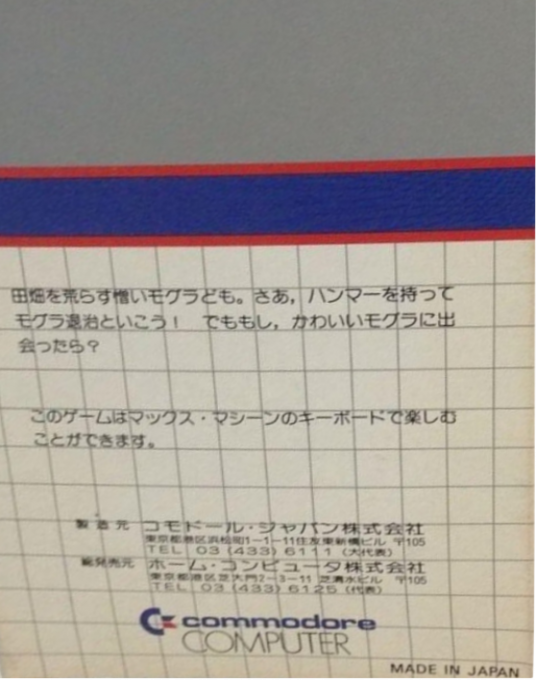 田畑を荒らす憎いモグラども。さあ，ハンマーを持って
モグラ退治といこう！　でももし，かわいいモグラに出
会ったら？
このゲームはマックス・マシーンのキーボードで楽しむ
ことができます。
製造元 コモドール・ジャパン株式会社
東京都港区浜松町1-1-11住友東新橋ビル 〒105
TEL 03 (433) 6111 (大代表)
総発売元 ホーム・コンピュータ株式会社
東京都港区芝大門2-3-11 芝清水ビル 〒105
TEL 03 (433) 6125 (代表)
commodore
COMPUTER
MADE IN JAPAN